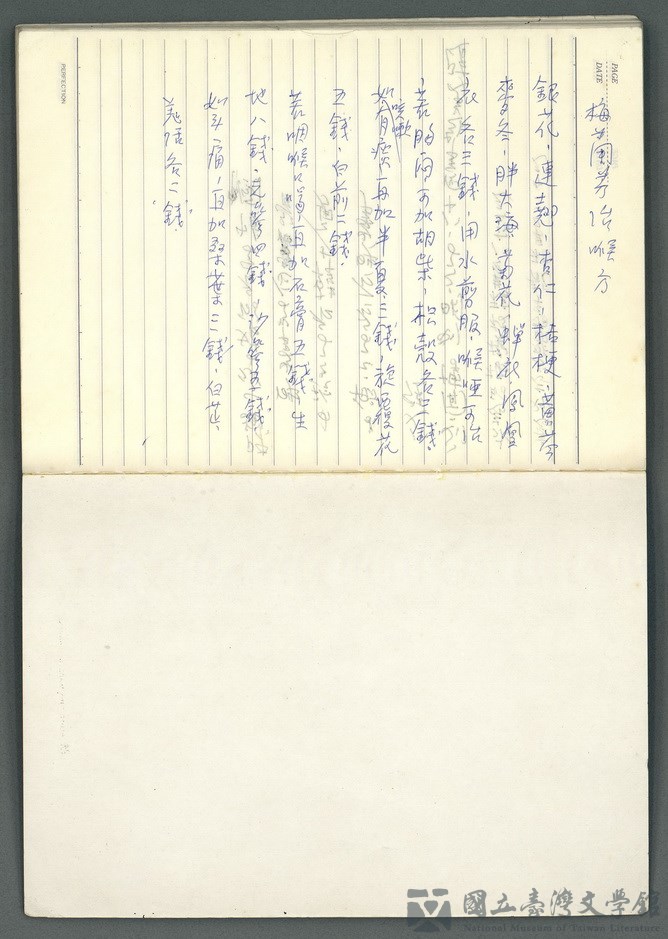 PAGE
DATE
梅蘭芳治喉方
銀花、連翹、杏仁、桔梗、黃芩
麥冬、胖大海、菊花、蟬衣、鳳凰
衣各三錢、用水煎服、喉啞可治
若胸悶可加胡柴、枳殼各二錢、
咳嗽
如有痰、再加半夏三錢、旋覆花
五錢、白前二錢、
若咽喉口渴、再加石膏五錢、生
地八錢、元參四錢、沙參五錢、
如頭痛、再加桑葉三錢、白芷、
羌活各二錢、
PERFECTION
國立臺灣文學館
National Museum of Taiwan Literature